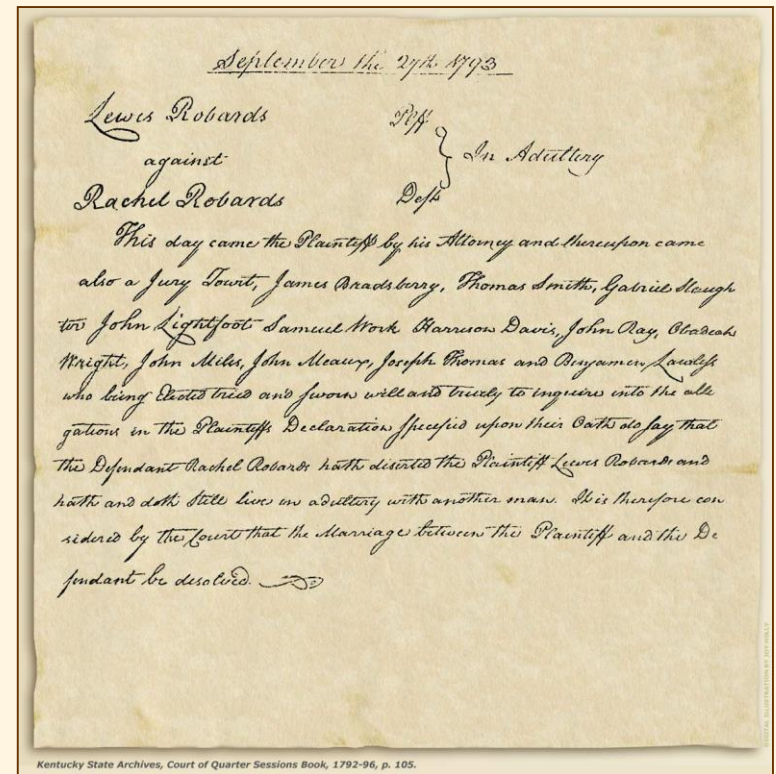 September the 27th 1793
Lewis Robards Plff
against In Adultery
Rachel Robards Deft
This day came the Plaintiff by his Attorney and thereupon came
also a Jury Towit, James Bradsberry, Thomas Smith, Gabriel Slaugh
ter John Lightfoot Samuel Work Harrison Davis, John Ray, Obadiah
Wright, John Miles, John Meaux, Joseph Thomas and Benjamin Lawless
who being Elected tried and sworn will and truely to inquire into the alle
gations in the Plaintiffs Declaration specified upon their Oath do say that
the Defendant Rachel Robards hath diserted the Plaintiff Lewis Robards and
hath and doth Still live in adultery with another man. It is therefore con
sidered by the Court that the Marriage between the Plaintiff and the De
fendant be desolved.
Kentucky State Archives, Court of Quarter Sessions Book, 1792-96, p. 105.
DIGITAL ILLUSTRATION BY